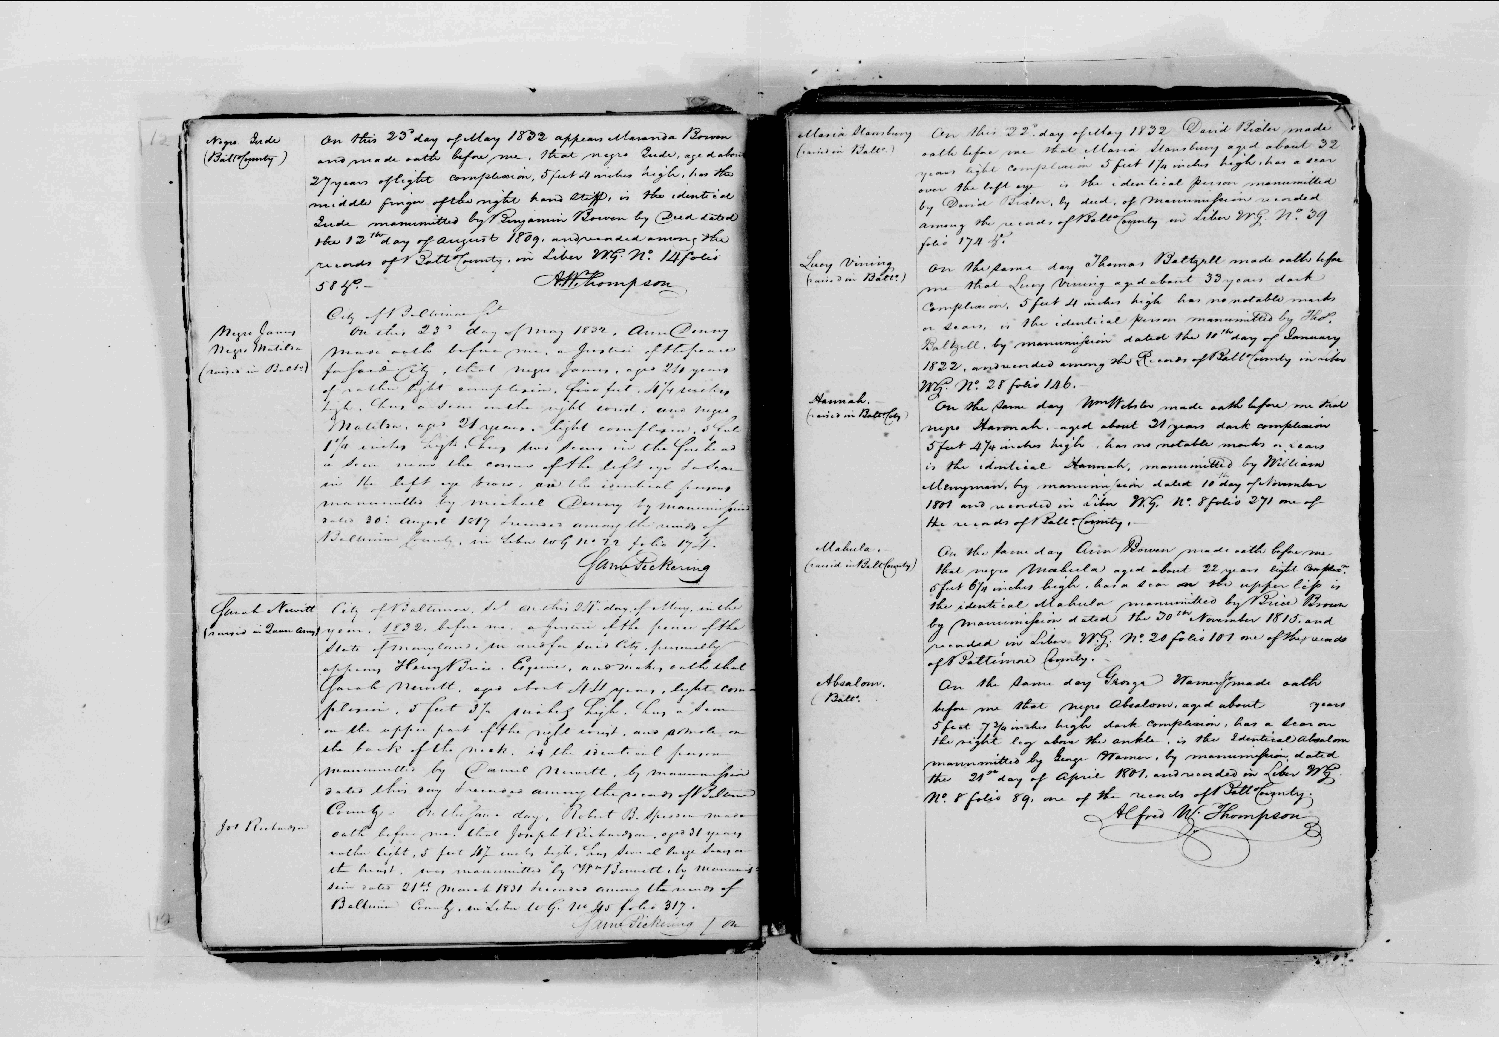 Negro Jude
(Balto County)
On this 23d day of May 1832 appears Maranda Bowen
and made oath before me, that negro Jude, aged about
27 years of light complexion, 5 feet 4 inches high, has the
middle finger of the right hand stiff, is the identical
Jude manumitted by Benjamin Bowen by Deed dated
the 12th day of August 1809, and recorded among the
records of Balto County, in Liber WG. No. 14 folio
58 &c. —
A W Thompson
Negro James
Negro Matilda
(raised in Balto)
City of Baltimore Sct
On this 23d day of May 1832, Ann Denny
made oath before me, a Justice of the peace
for said City, that negro James, aged years
of rather light complexion, five feet inches
high, has a scar on the right wrist, and negro
Matilda, aged 21 years, light complexion, 5 feet
1 1/4 inches high, has two scars in the forehead
a scar near the corner of the left eye & a scar
in the left eye brow, are the identical persons
manumitted by Michael Denny by manumission
dated 30th August 1817 & recorded among the records of
Baltimore County, in Liber WG No folio 174.
James Pickering
Sarah Newitt
(raised in Queen Anns)
City of Baltimore, Sct. On this 24th day of May, in the
year, 1832, before me a Justice of the peace of the
State of Maryland, in and for said City, personally
appears Henry Brice, Esquire, and makes oath that
Sarah Newitt, aged about 44 years, light com-
plexion, 5 feet inches high, has a scar
on the upper part of the right wrist, and a mole on
the back of the neck, is the identical person
manumitted by Daniel Newitt, by manumission
dated this day & recorded among the records of Baltimore
County — On the same day, Robert B. made
Jos Richardson
oath before me that Joseph Richardson, aged 31 years
rather light, 5 feet inches high, has several large scars on
the breast, was manumitted by Wm Bennett, by manumis-
sion dated 21st March 1831 & recorded among the records of
Baltimore County, in Liber WG. No 45 folio 317.
James Pickering / On
Maria Stansbury
(raised in Balto.)
On this 22d day of May 1832 David Bixler made
oath before me that Maria Stansbury aged about 32
years light complexion 5 feet 1 1/4 inches high, has a scar
over the left eye is the identical person manumitted
by David Bixler, by deed, of manumission recorded
among the records of Balto County in Liber WG. No. 39
folio 174 &c.
Lucy Vining
(raised in Balto.)
On the same day Thomas Baltzell made oath before
me that Lucy Vining aged about 33 years dark
complexion, 5 feet 4 inches high has no notable marks
or scars, is the identical person manumitted by Thos.
Baltzell, by manumission dated the 10th day of January
1822, and recorded among the Records of Balto County in Liber
WG. No. 28 folio 146. —
Hannah. —
(raised in Balto City)
On the same day Wm Webster made oath before me that
negro Hannah, aged about 21 years dark complexion
5 feet 4 3/4 inches high, has no notable marks or scars
is the identical Hannah, manumitted by William
Merryman, by manumission dated 10th day of November
1801 and recorded in Liber WG. No. 8 folio 271 one of
the records of Balto County. —
Mahula.
(raised in Balto County)
On the same day Ann Bowen made oath before me
that negro Mahula aged about 22 years light complexn.
5 feet 6 3/4 inches high, has a scar on the upper lip is
the identical Mahula manumitted by Brice Brown
by manumission dated the 30th November 1815, and
recorded in Liber WG. No. 20 folio 101 one of the records
of Baltimore County.
Absalom.
(Balto.
On the same day George Warner made oath
before me that negro Absalom, aged about years
5 feet 7 3/4 inches high dark complexion, has a scar on
the right leg above the ankle, is the Identical Absalom
manumitted by George Warner, by manumission, dated
the 21st day of April 1801, and recorded in Liber WG.
No. 8 folio 89, one of the records of Balto County.
Alfred W. Thompson